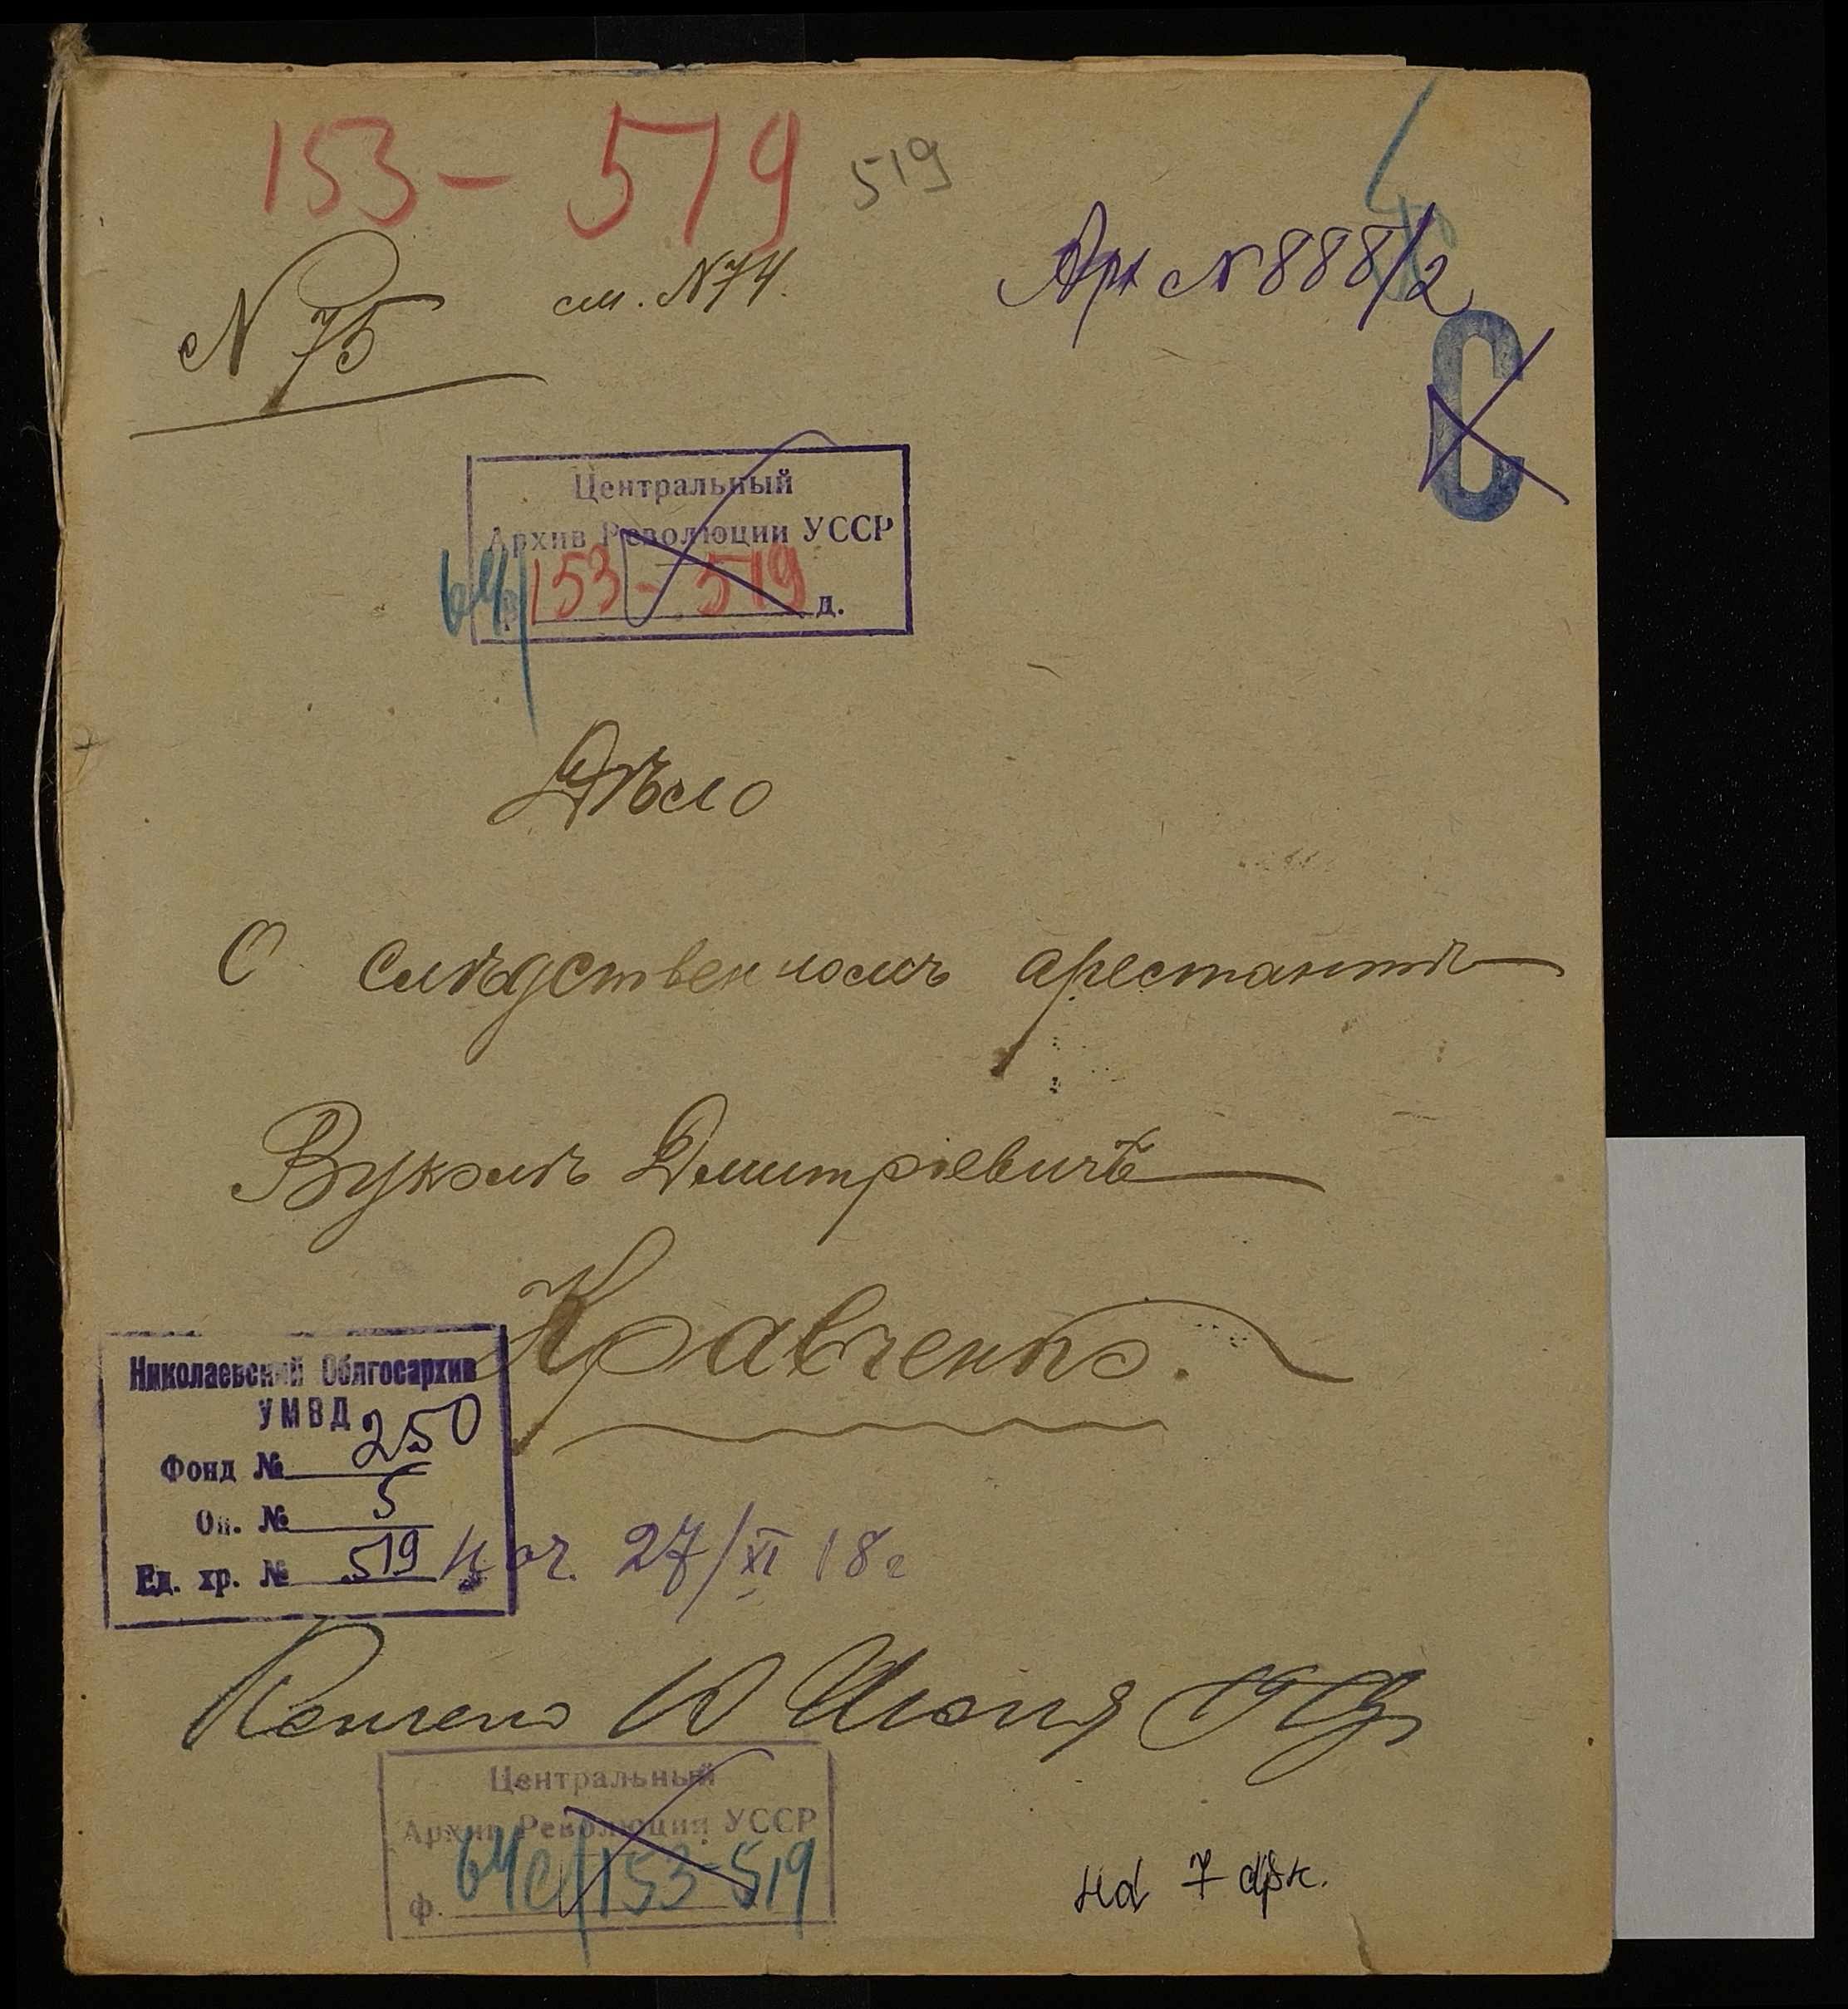 153 – 579 519
Арх № 888/2
№ 75 см. № 74.
С
Центральный
Архив Революции УССР
64 153 - 519 д.
Дѣло
О слѣдственномъ арестантѣ
Вуколѣ Дмитріевичѣ
Кравченко.
Николаевский Облгосархив
УМВД
Фонд № 250
Оп. № 5
Ед. хр. № 519
Нач. 27/XI 18 г
Кончено 10 Июня
Центральный
Архив Революции УССР
ф. 64с/153-519
на 7 арк.